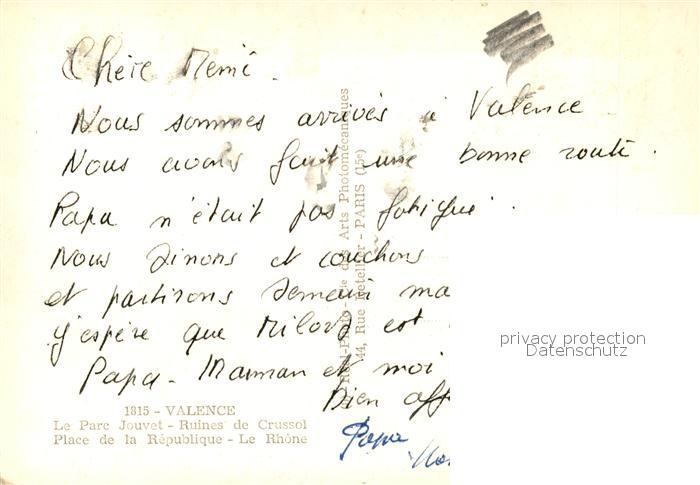 Chère Memé.
Nous sommes arrivés à Valence
Nous avons fait une bonne route.
Papa n'était pas fatigué.
Nous dinons et couchons
et partirons demain ma
J'espère que Milord est
Papa - Maman et moi
bien aff
Papa
1815 - VALENCE
Le Parc Jouvet - Ruines de Crussol
Place de la République - Le Rhône
Arts Photomécaniques
44, Rue Letellier - PARIS (15e)
privacy protection
Datenschutz